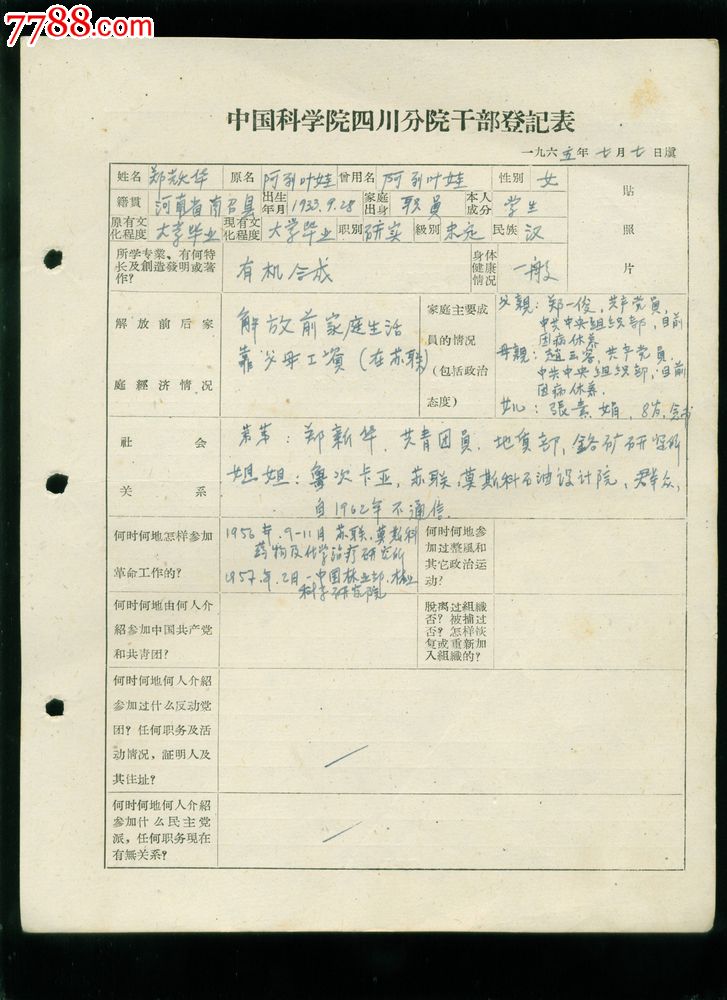 7788.com
中国科学院四川分院干部登記表
一九六五年七月七日填
姓名 郑 华 原名 阿列叶娃 曾用名 阿列叶娃 性别 女
籍貫 河南省南召县 出生年月 1933.9.28 家庭出身 职員 本人成分 学生
原有文化程度 大学毕业 現有文化程度 大学毕业 职別 研实 級別 未定 民族 汉
貼
照
片
所学专業、有何特長及創造發明或著作? 有机合成 身体健康情况 一般
解放前后家庭經济情况 解放前家庭生活
靠父母工資(在苏联)
家庭主要成員的情况(包括政治态度)
父親:郑一俊,共产党員,
中共中央組织部,目前
因病休养
母親:趙玉 ,共产党員,
中共中央組织部,目前
因病休养.
女儿:張素娟,8岁,
社会关系 弟弟:郑新华,共青团員,地质部, 矿研究所
姐姐:鲁次卡亚,苏联,莫斯科石油设计院,群众,
自1962年不通信.
何时何地怎样参加革命工作的?
1956年.9-11月 苏联.莫斯科
药物及化学治疗研究所
1957年.2月-中国林业部.林业
科学研究院
何时何地参加过整風和其它政治运动?
何时何地由何人介紹参加中国共产党和共青团?
脫离过組織否?被捕过否?怎样恢复或重新加入組織的?
何时何地何人介紹
参加过什么反动党
团?任何职务及活
动情况,証明人及
其住址?
何时何地何人介紹
参加什么民主党
派,任何职务現在
有無关系?